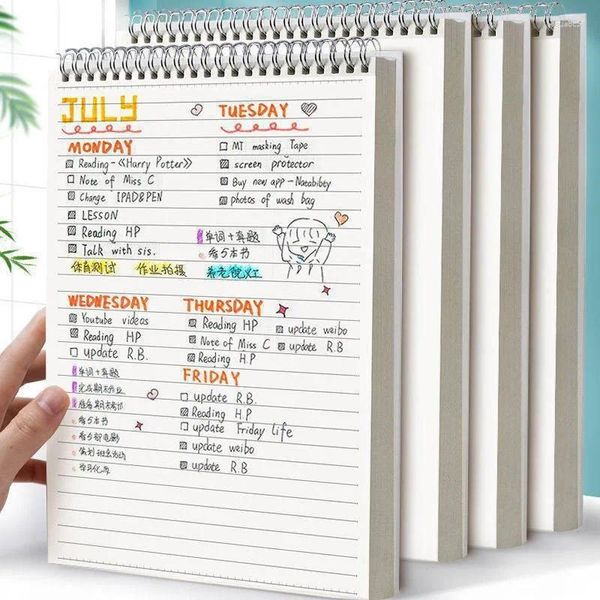 JULY
MONDAY
Reading-《Harry Potter》
Note of Miss C
Change IPAD&PEN
LESSON
Reading HP
Talk with sis.
体育测试 作业拍摄
TUESDAY
MT masking Tape
screen protector
Buy new app-Naeabibty
photos of wash bag
单词+真题
看5本书
WEDNESDAY
Youtube videos
Reading HP
update R.B.
单词+真题
完成期末作业
看5本书
THURSDAY
Reading HP
Note of Miss C
Reading H.P
update weibo
update R.B
FRIDAY
update R.B.
Reading H.P
update Friday life
update weibo
update R.B